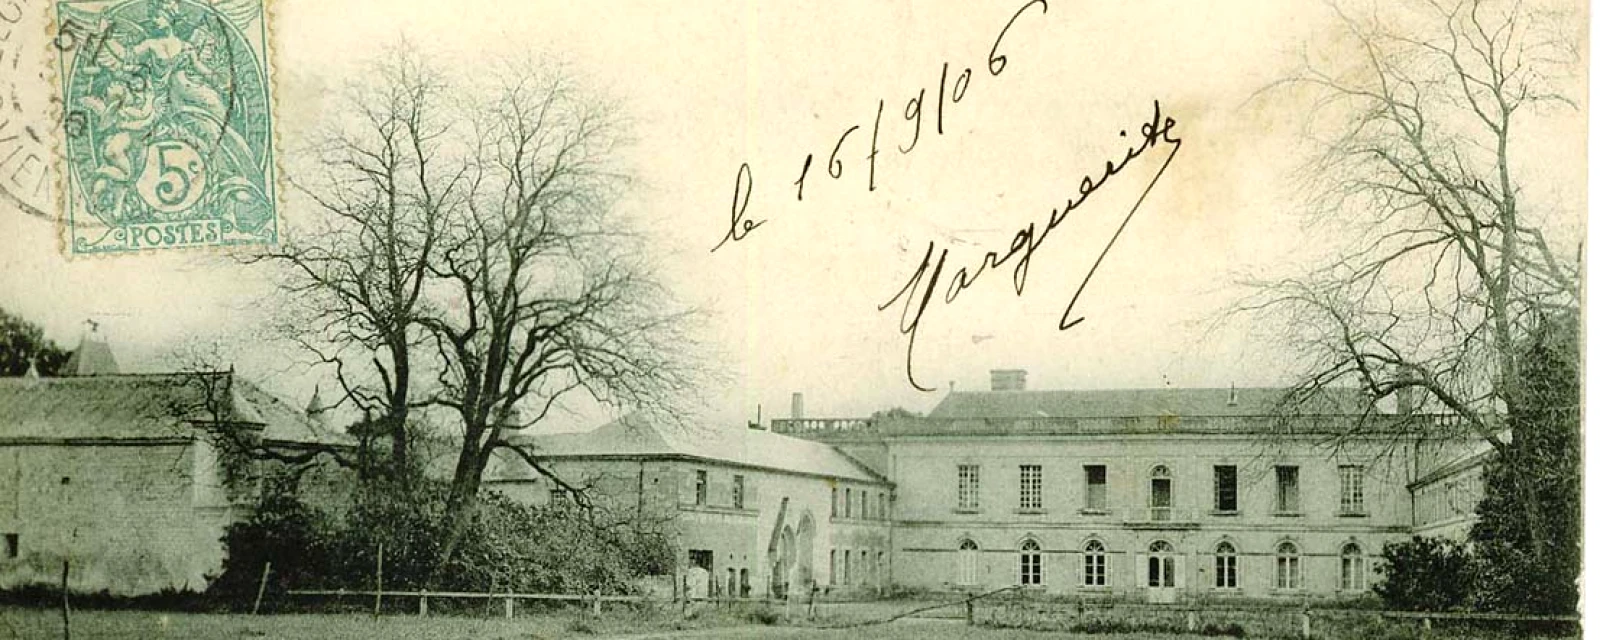 5c
POSTES
le 16/9/06
Marguerite